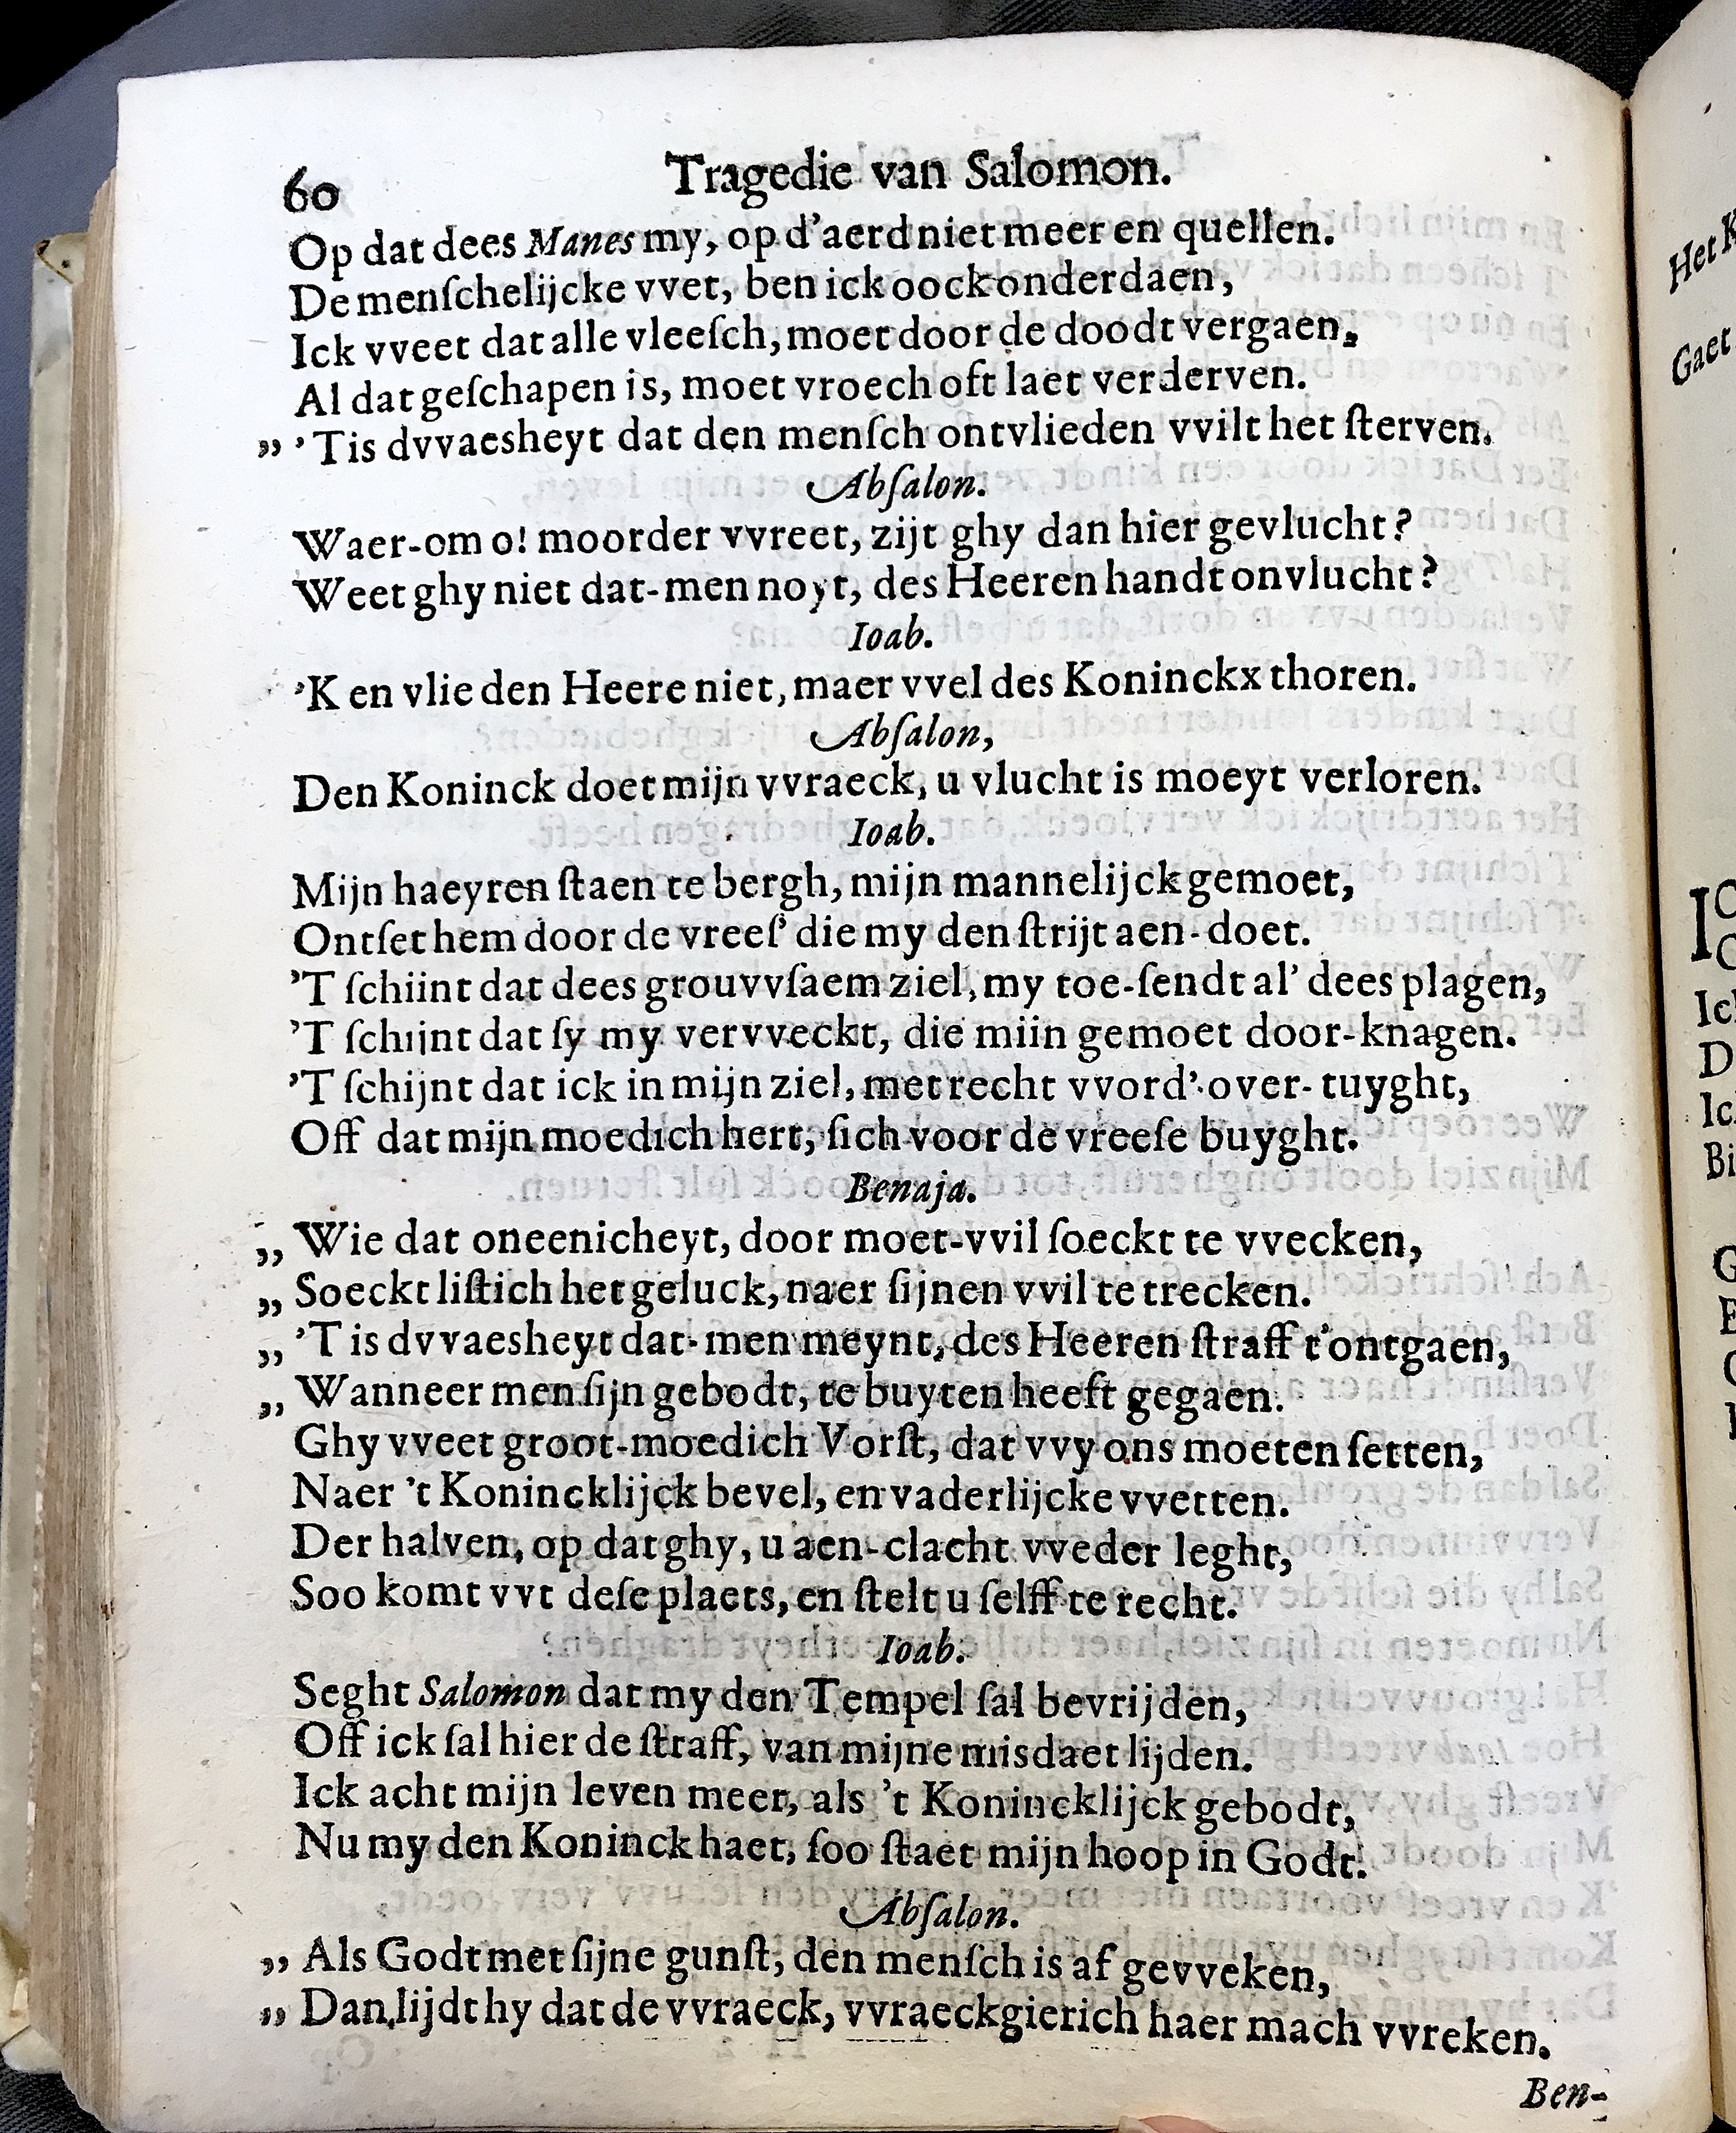 60 Tragedie van Salomon.
Op dat dees Manes my, op d'aerd niet meer en quellen.
De menſchelijcke vvet, ben ick oock onderdaen,
Ick vveet dat alle vleeſch, moet door de doodt vergaen,
Al dat geſchapen is, moet vroech oft laet verderven.
„ 'Tis dvvaesheyt dat den menſch ontvlieden vvilt het ſterven.
Abſalon.
Waer-om o! moorder vvreet, zijt ghy dan hier gevlucht?
Weet ghy niet dat-men noyt, des Heeren handt onvlucht?
Ioab.
'K en vlie den Heere niet, maer vvel des Koninckx thoren.
Abſalon,
Den Koninck doet mijn vvraeck, u vlucht is moeyt verloren.
Ioab.
Mijn haeyren ſtaen te bergh, mijn mannelijck gemoet,
Ontſet hem door de vreeſ' die my den ſtrijt aen-doet.
'T ſchiint dat dees grouvvſaem ziel, my toe-ſendt al' dees plagen,
'T ſchijnt dat ſy my vervveckt, die miin gemoet door-knagen.
'T ſchijnt dat ick in mijn ziel, met recht vvord' over-tuyght,
Off dat mijn moedich hert, ſich voor de vreeſe buyght.
Benaja.
„ Wie dat oneenicheyt, door moet-vvil ſoeckt te vvecken,
„ Soeckt liſtich het geluck, naer ſijnen vvil te trecken.
„ 'T is dvvaesheyt dat-men meynt, des Heeren ſtraff t'ontgaen,
„ Wanneer men ſijn gebodt, te buyten heeft gegaen.
Ghy vveet groot-moedich Vorſt, dat vvy ons moeten ſetten,
Naer 't Konincklijck bevel, en vaderlijcke vvetten.
Der halven, op dat ghy, u aen-clacht vveder leght,
Soo komt vvt deſe plaets, en ſtelt u ſelff te recht.
Ioab.
Seght Salomon dat my den Tempel ſal bevrijden,
Off ick ſal hier de ſtraff, van mijne misdaet lijden.
Ick acht mijn leven meer, als 't Konincklijck gebodt,
Nu my den Koninck haet, ſoo ſtaet mijn hoop in Godt.
Abſalon.
„ Als Godt met ſijne gunſt, den menſch is af gevveken,
„ Dan lijdt hy dat de vvraeck, vvraeckgierich haer mach vvreken.
Ben-
Het K
Gaet
Ick
D
Ic
Bi
G
E